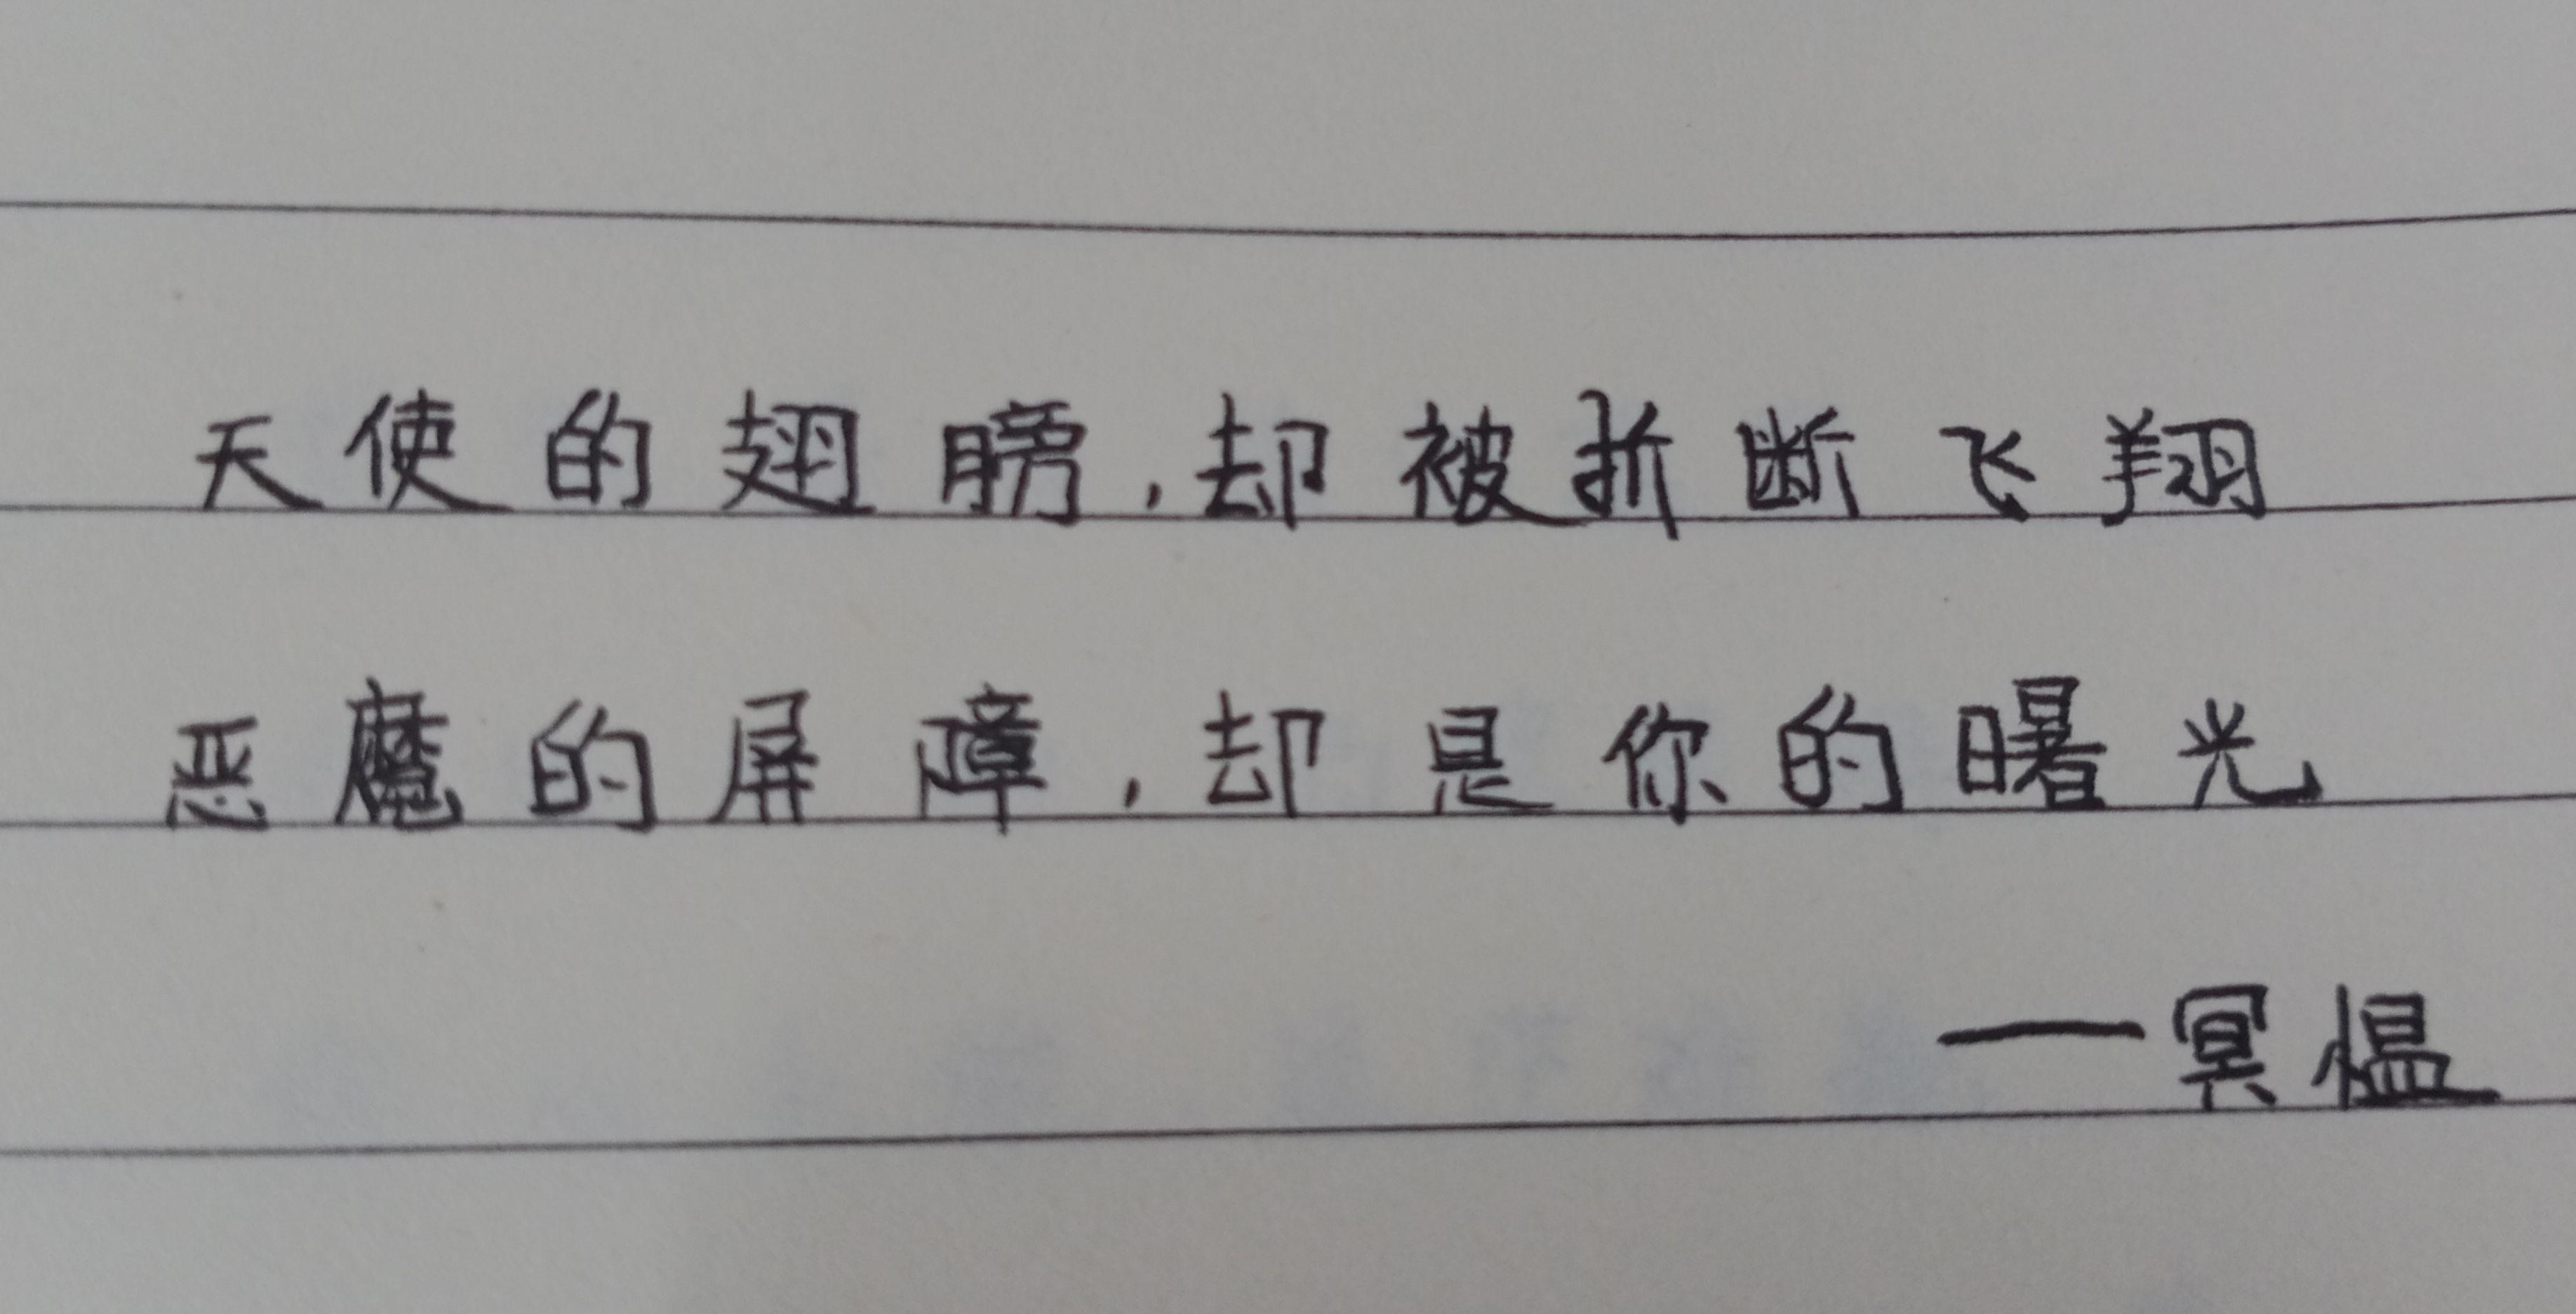 天使的翅膀，却被折断飞翔
恶魔的屏障，却是你的曙光
—冥愠